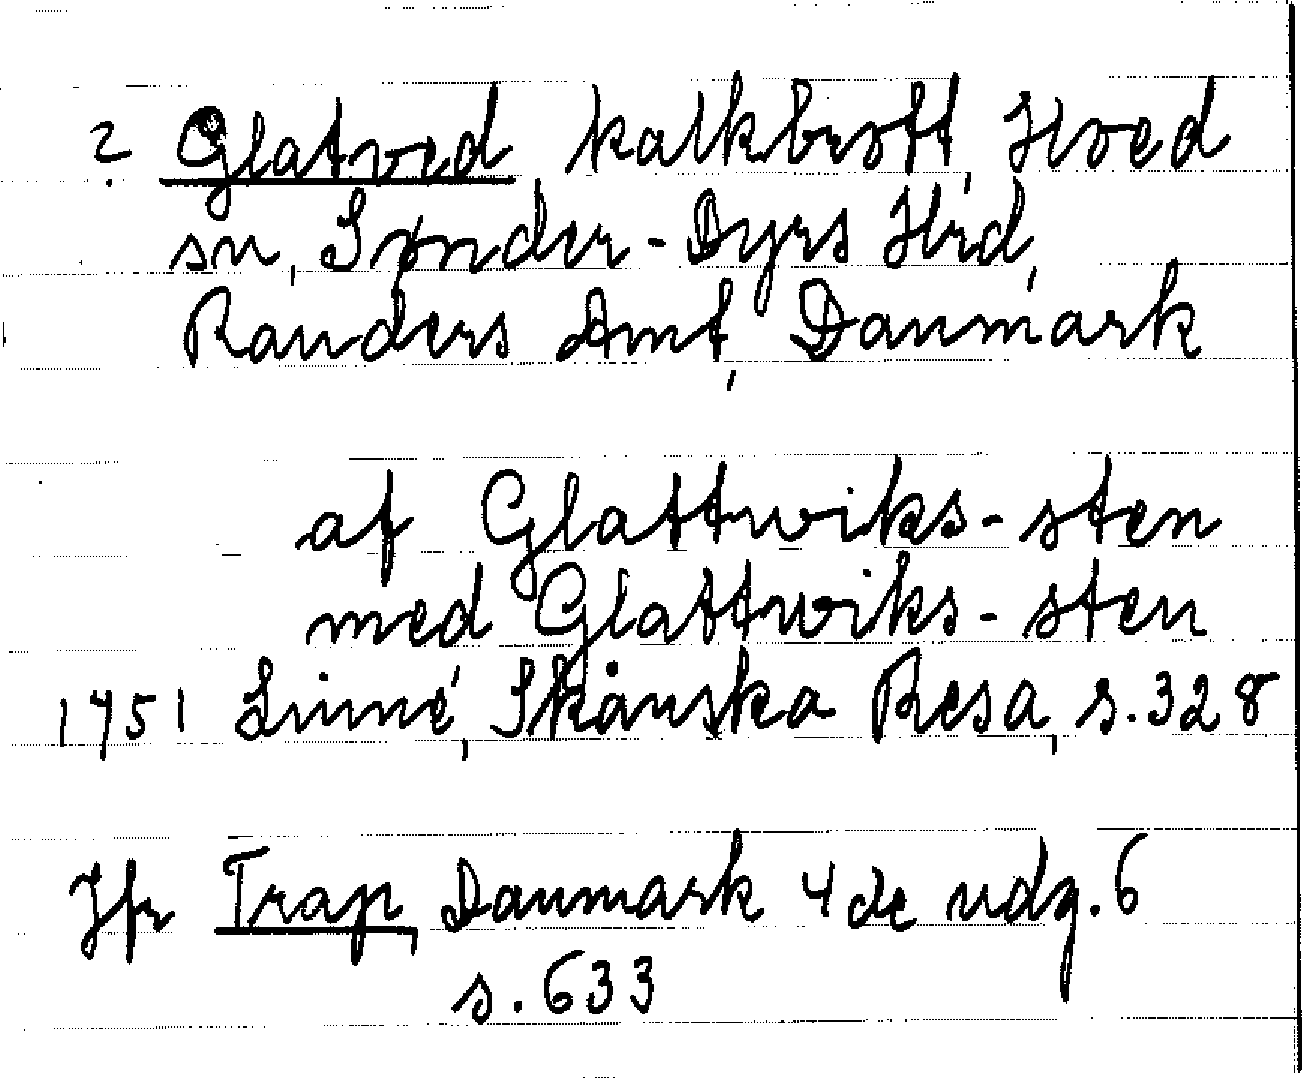 ? Glatved kalkbrott, Hoed
sn, Sønder-Dyrs Hrd,
Randers Amt, Danmark
af Glattwiks-sten
med Glattwiks-sten
1751 Linné, Skånska Resa, s.328
Jfr Trap, Danmark 4de udg.6
s.633